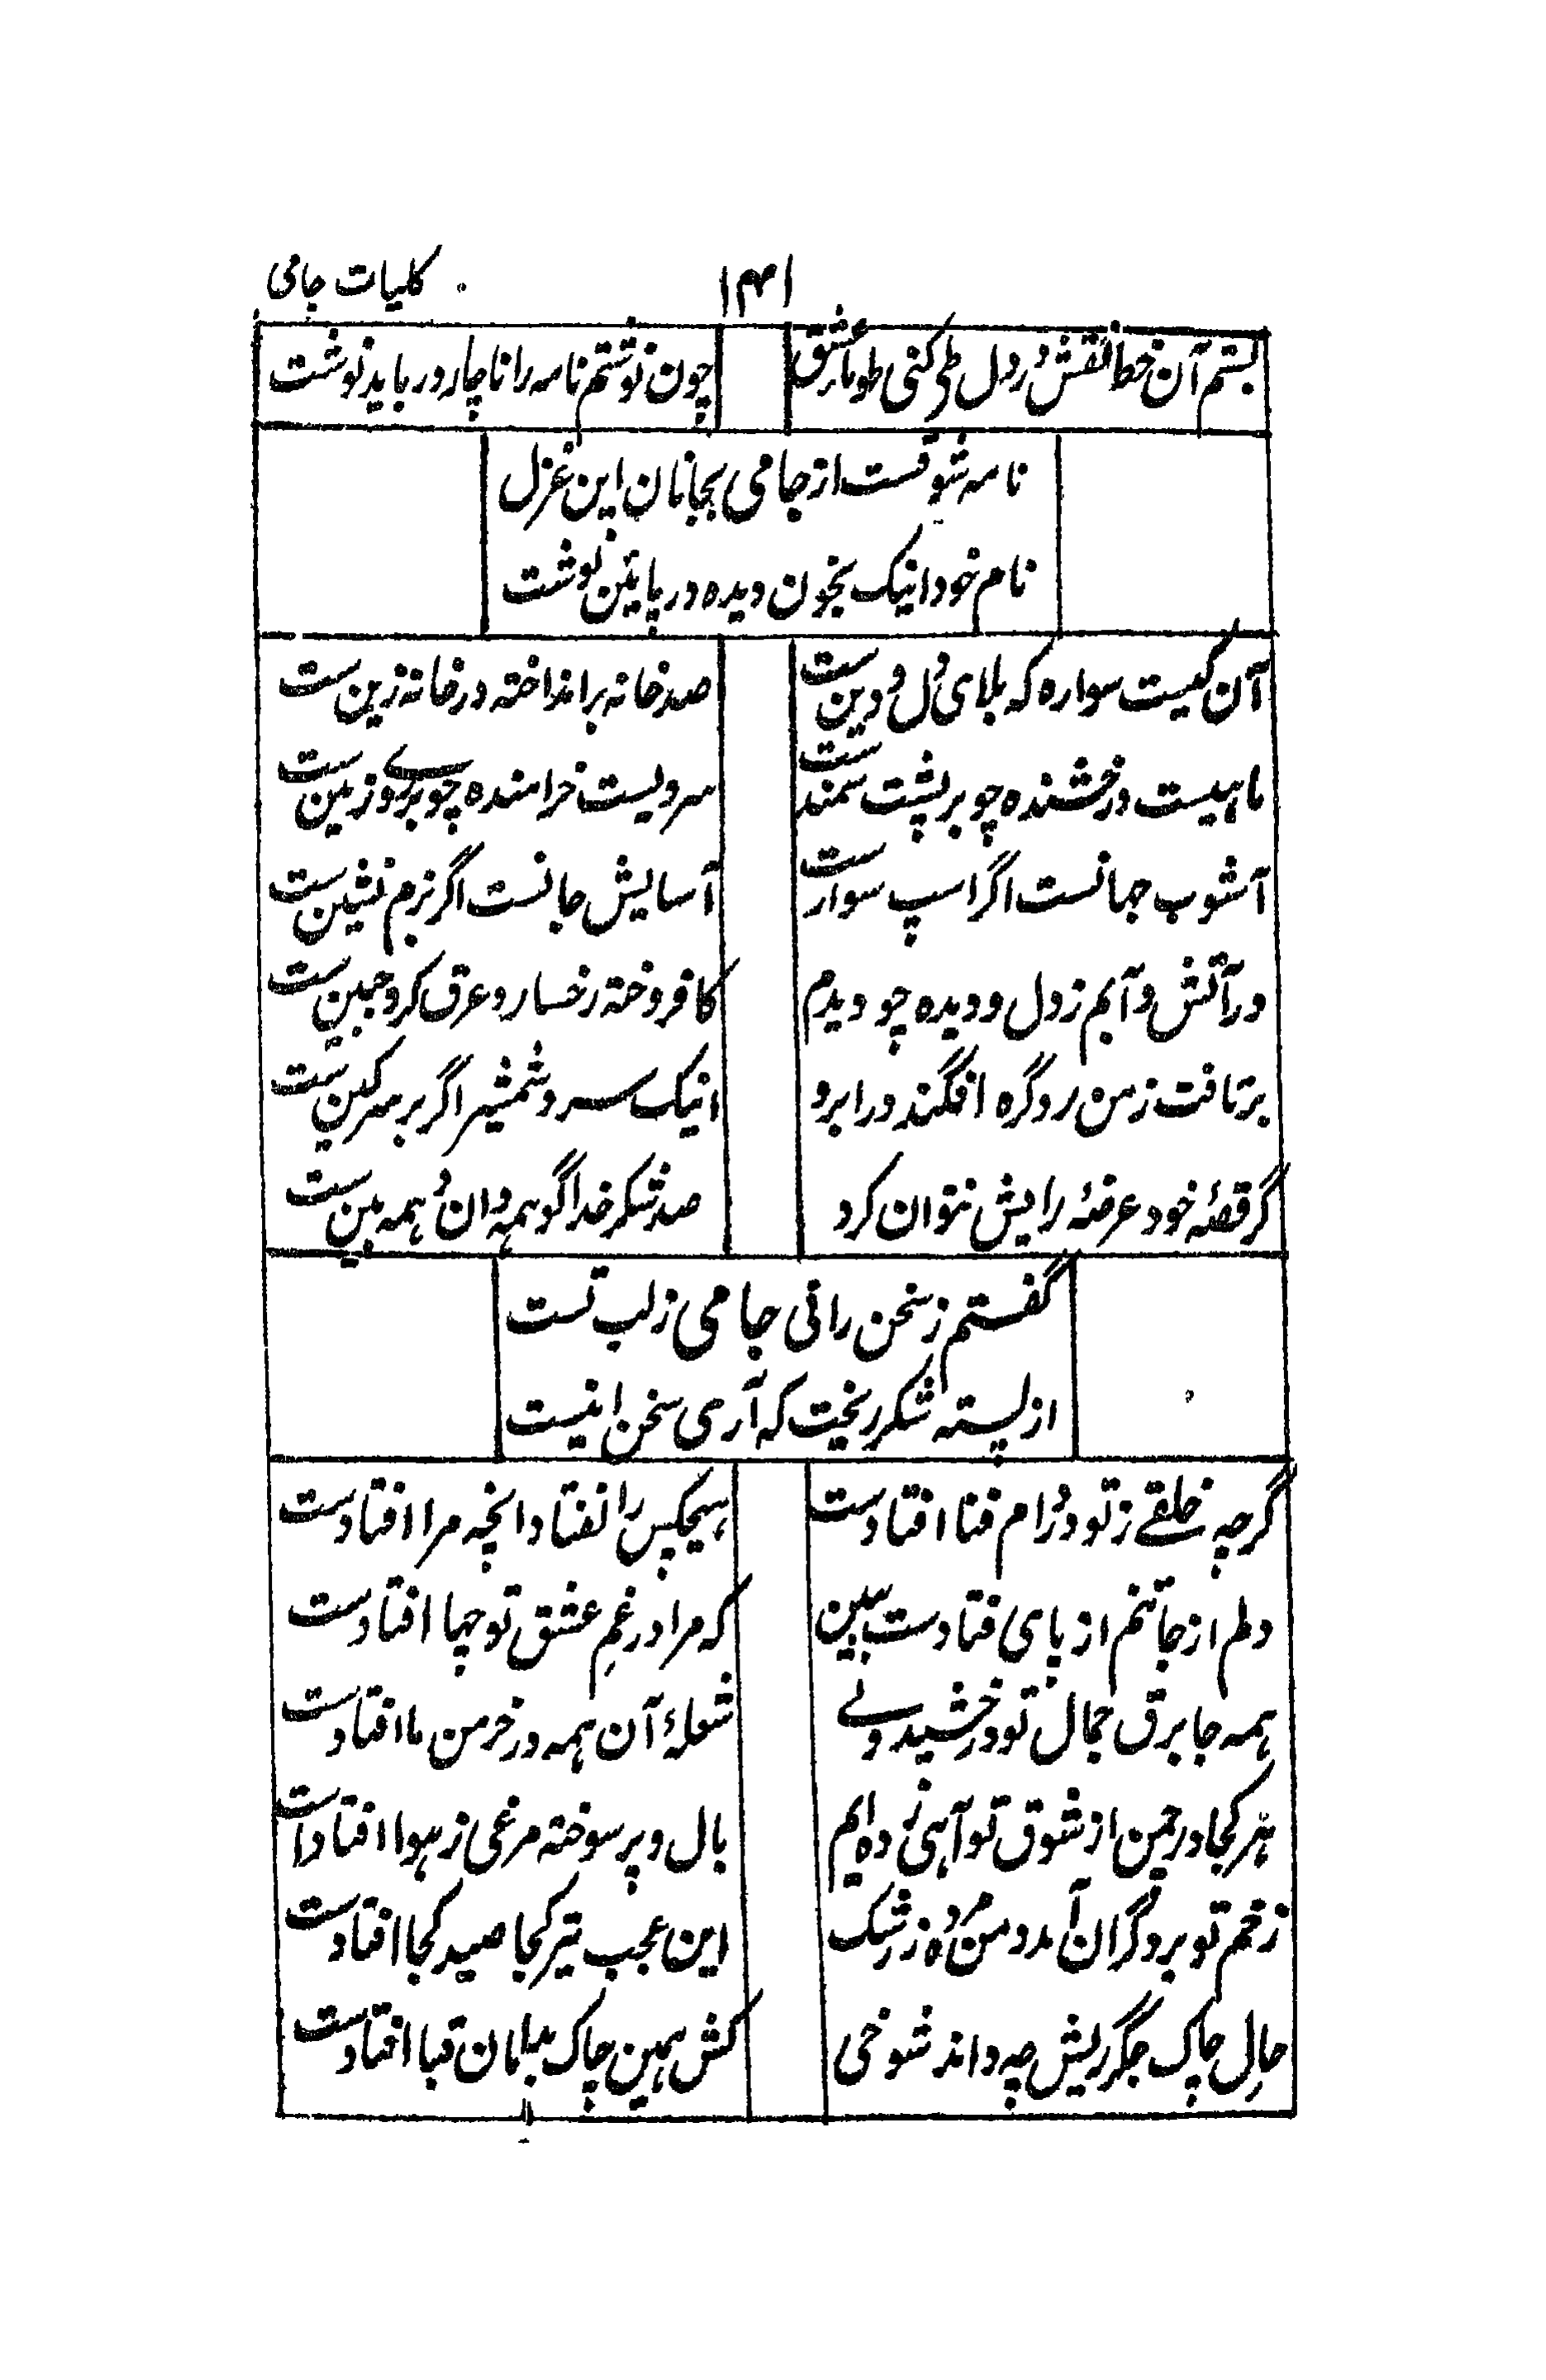 کلیات جامی
۱۴۱
بستم آن خط نقش در دل طی کنی طومار عشق
چون نوشتم نامه را ناچار در باید نوشت
نامه شوقست از جامی بجانان این غزل
نام خود اینک بخون دیده در پائین نوشت
آن کیست سواره که بلای دل و دین ست
صد خانه بر انداخته در خانه زین ست
ماهیست درخشنده چو بر پشت سمند ست
سرویست خرامنده چو بر روے زمین ست
آشوب جهانست اگر اسپ سوار ست
آسایش جانست اگر بزم نشین ست
در آتش و آبم ز دل و دیده چو دیدم
کافروخته رخسار و عرق کرد جبین ست
برتافت ز من رو گره افگند در ابرو
اینک سر و شمشیر اگر بر سر کین ست
گر قصهٔ خود عرضهٔ رایش نتوان کرد
صد شکر خدا گو همه دان و همه بین ست
گفتم ز سخن رانی جامی ز لب تست
از پسته شکر ریخت که آری سخن اینست
گرچه خلقے ز تو در دام فنا افتادست
هیچکس را نفتاد انچه مرا افتادست
دلم از جا تنم از پای فتادست ببین
که مرا در غمِ عشق تو چها افتادست
همه جا برق جمال تو درخشید ولے
شعلهٔ آن همه در خرمن ما افتادست
هر کجا در چمن از شوق تو آهی زده ایم
بال و پر سوخته مرغی ز هوا افتادست
زخم تو بر دگران آمد و من مرده ز رشک
این عجب تیر کجا صید کجا افتادست
حالِ چاک جگر ریش چه داند شوخی
کش همین چاک بدامان قبا افتادست